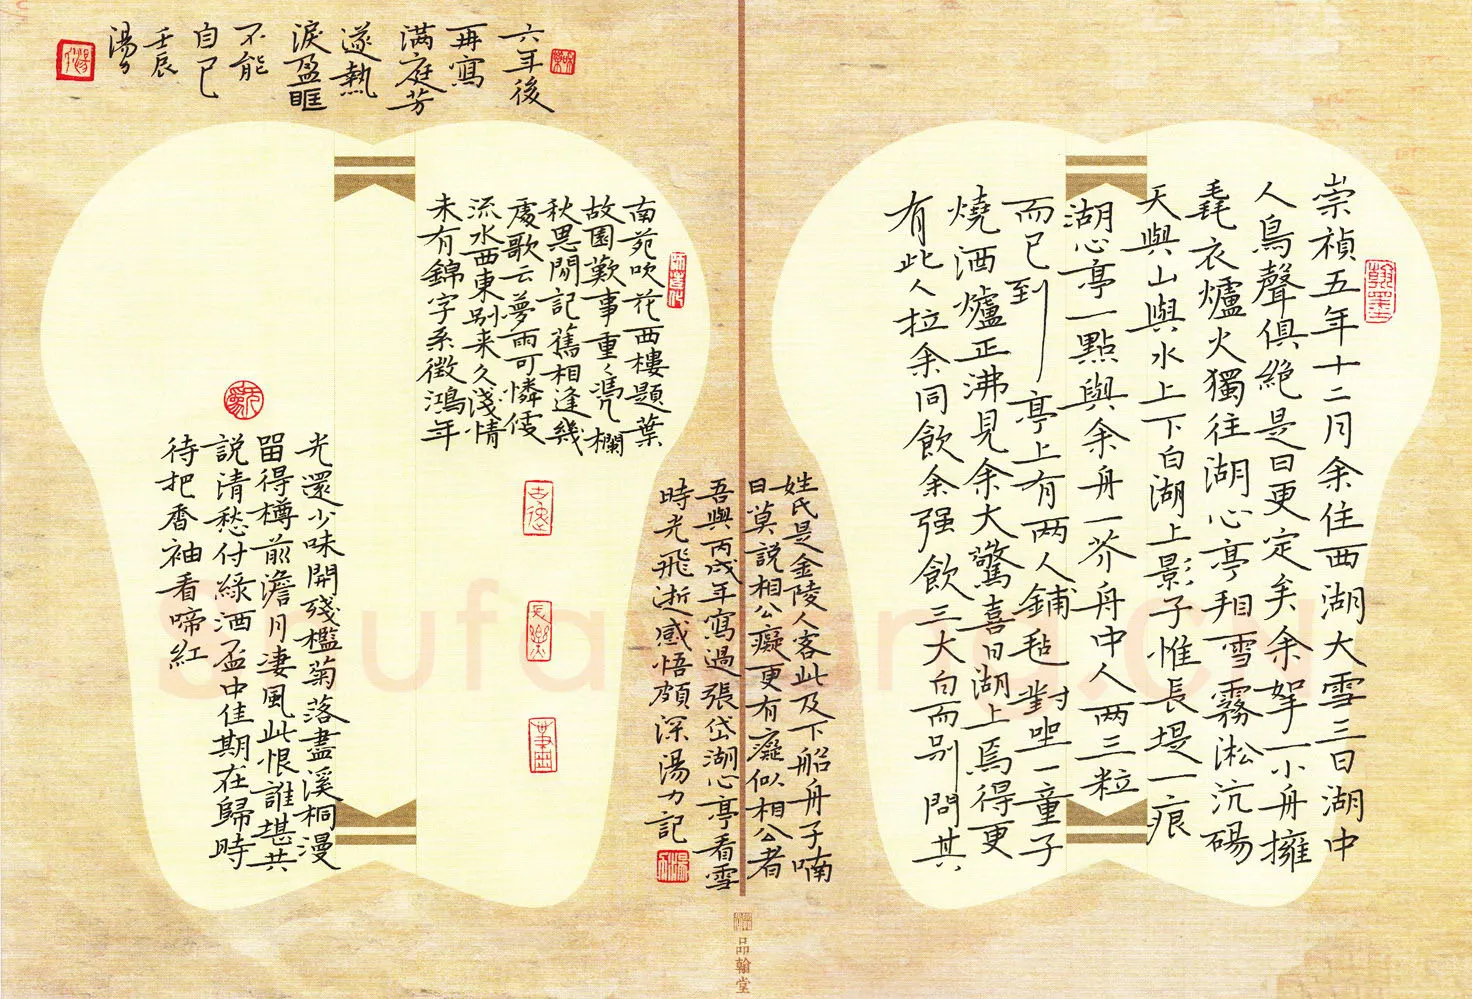 崇禎五年十二月余住西湖大雪三日湖中
人鳥聲俱絕是日更定矣余拏一小舟擁
毳衣爐火獨往湖心亭看雪霧淞沆碭
天與山與水上下白湖上影子惟長堤一痕
湖心亭一點與余舟一芥舟中人兩三粒
而已到亭上有两人鋪毡對坐一童子
燒酒爐正沸見余大驚喜曰湖上焉得更
有此人拉余同飲余强飲三大白而别問其
姓氏是金陵人客此及下船舟子喃
曰莫説相公癡更有癡似相公者
吾與丙戌年寫過張岱湖心亭看雪
時光飛逝感悟頗深湯力記
南苑吹花西樓題葉
故園歡事重〻憑欄
秋思閒記舊相逢幾
處歌云夢雨可憐便
流水西東别来久淺情
未有錦字系徵鴻年
光還少味開殘檻菊落盡溪桐漫
留得樽前澹月凄風此恨誰堪共
説清愁付緑酒盃中佳期在歸時
待把香袖看啼紅
六年後
再寫
满庭芳
遂熱
淚盈眶
不能
自已
壬辰
湯力
品翰堂
Shufa
.cn